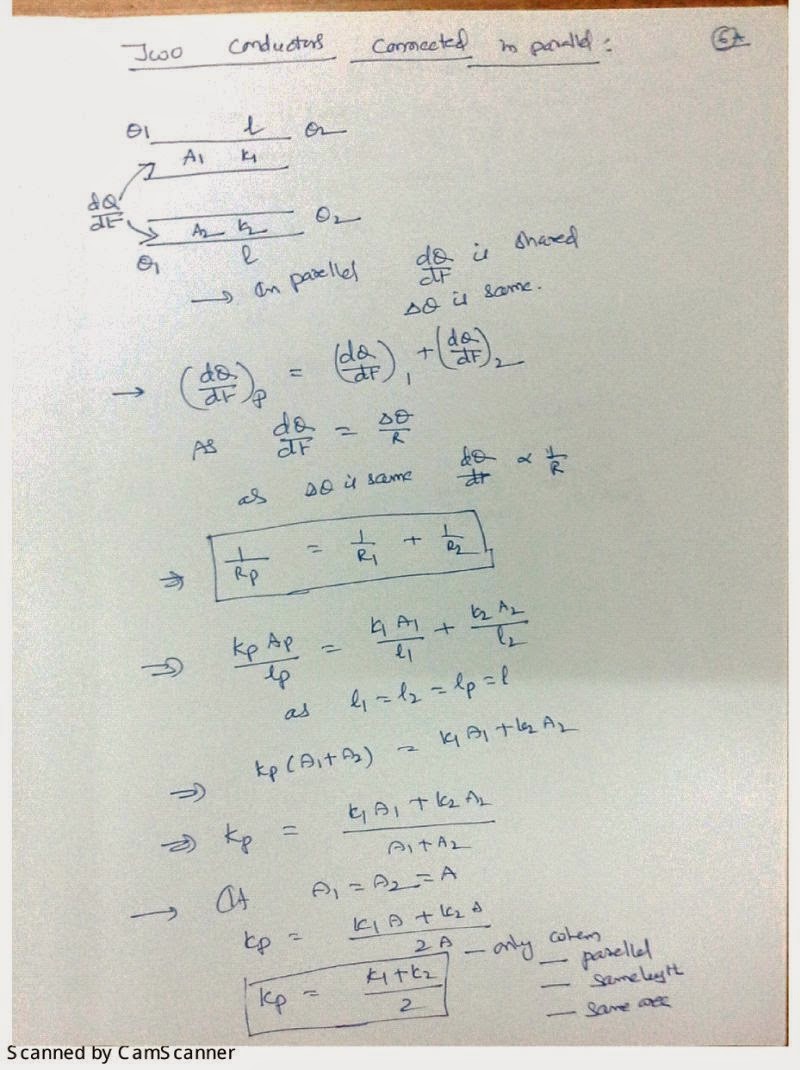 Two conductors connected in parallel :
6A
θ1 l θ2
A1 K1
dQ/dt
A2 K2 θ2
θ1 l
→ In parellel dQ/dt is shared
Δθ is same.
→ (dQ/dt)p = (dQ/dt)1 + (dQ/dt)2
As dQ/dt = Δθ/R
as Δθ is same dQ/dt ∝ 1/R
⇒ 1/Rp = 1/R1 + 1/R2
⇒ Kp Ap/lp = K1 A1/l1 + K2 A2/l2
as l1 = l2 = lp = l
⇒ Kp (A1 + A2) = K1 A1 + K2 A2
⇒ Kp = K1 A1 + K2 A2 / A1 + A2
→ If A1 = A2 = A
Kp = K1 A + K2 A / 2A — only when
— parellel
Kp = K1 + K2 / 2 — same length
— same area
Scanned by CamScanner